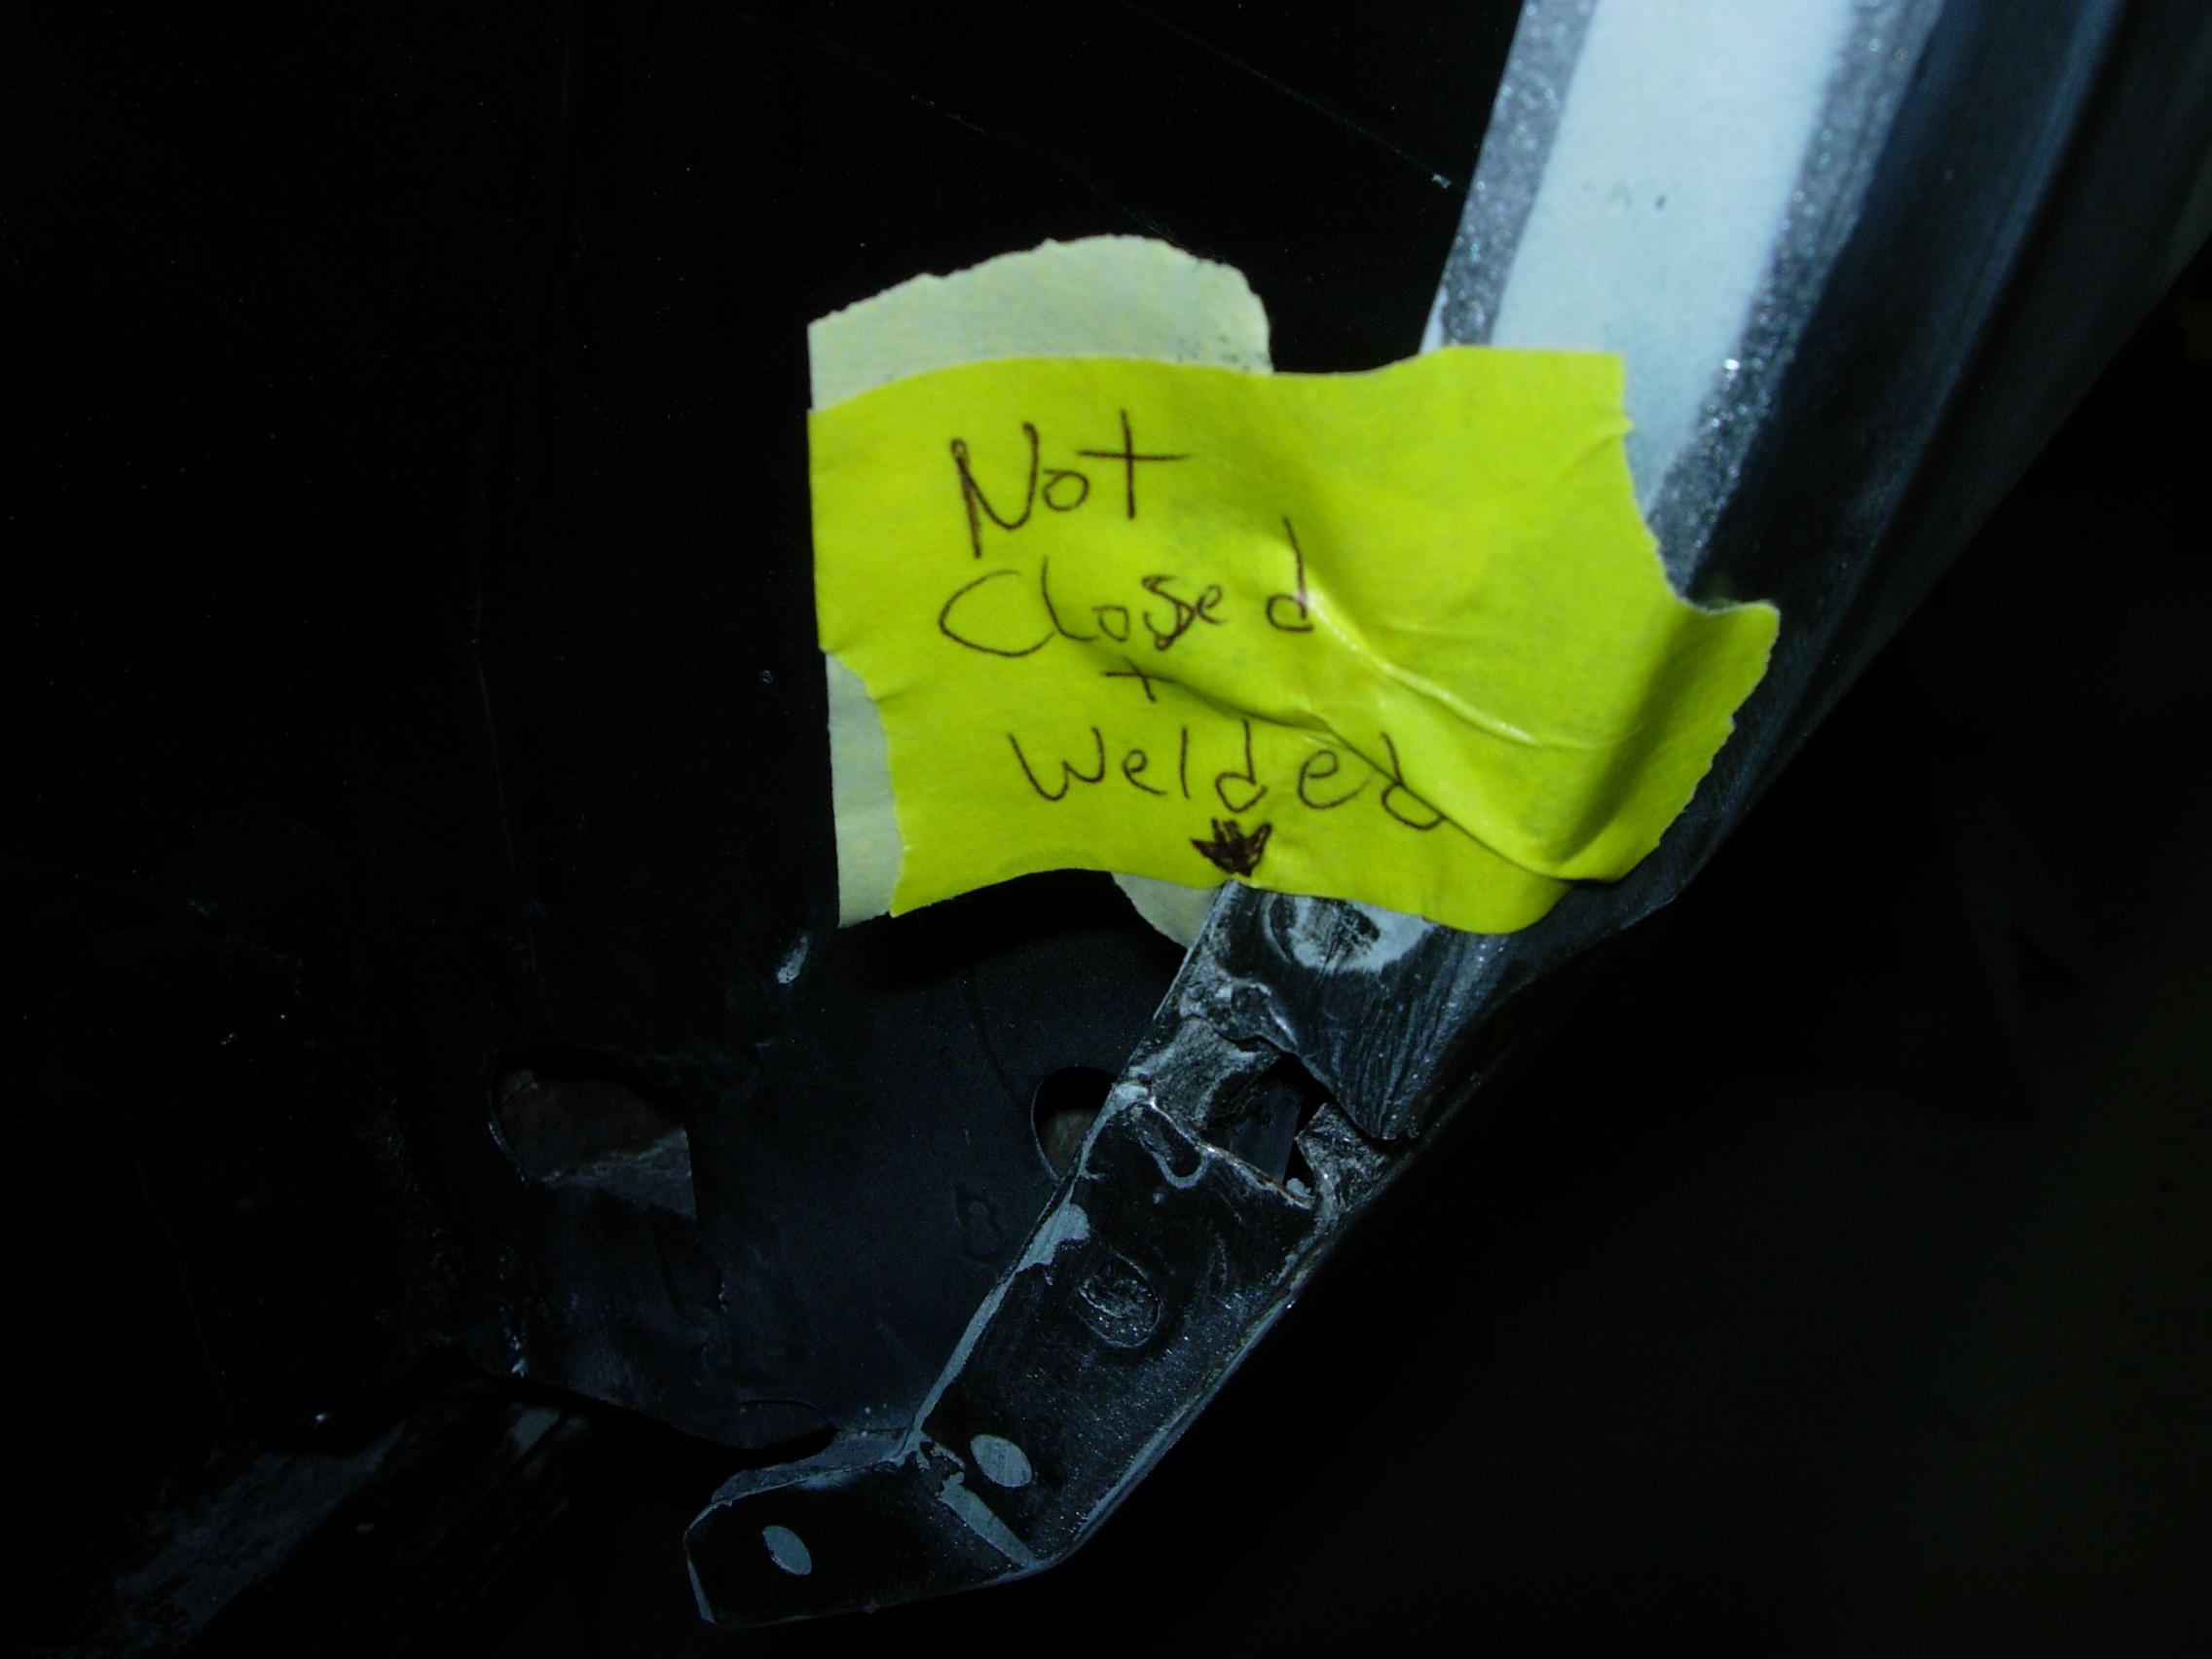 Not
Closed
+
Welded
B